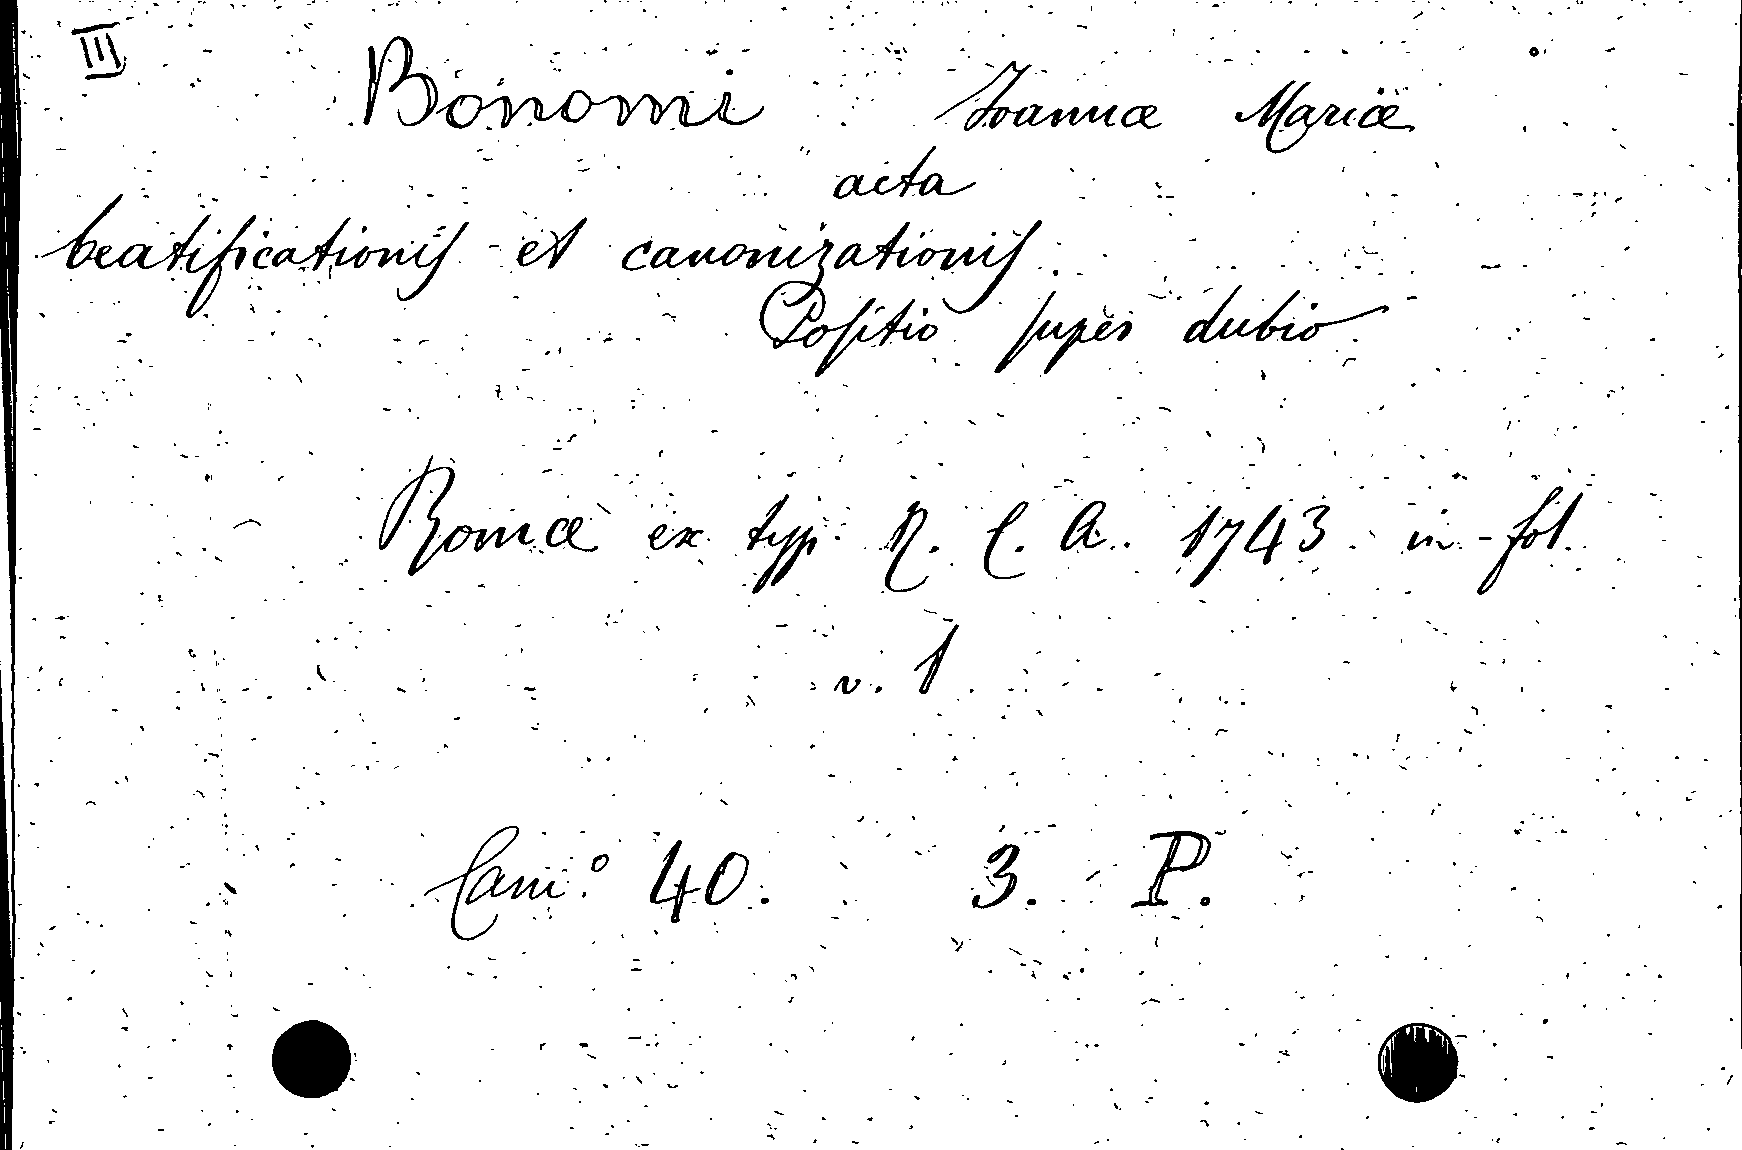 III
Bonomi Joannæ Mariæ
acta
beatificationis et canonizationis.
Positio super dubio
Romæ ex typ. R. C. A. 1743 in-fol.
v. 1
Cam.° 40. 3. P.